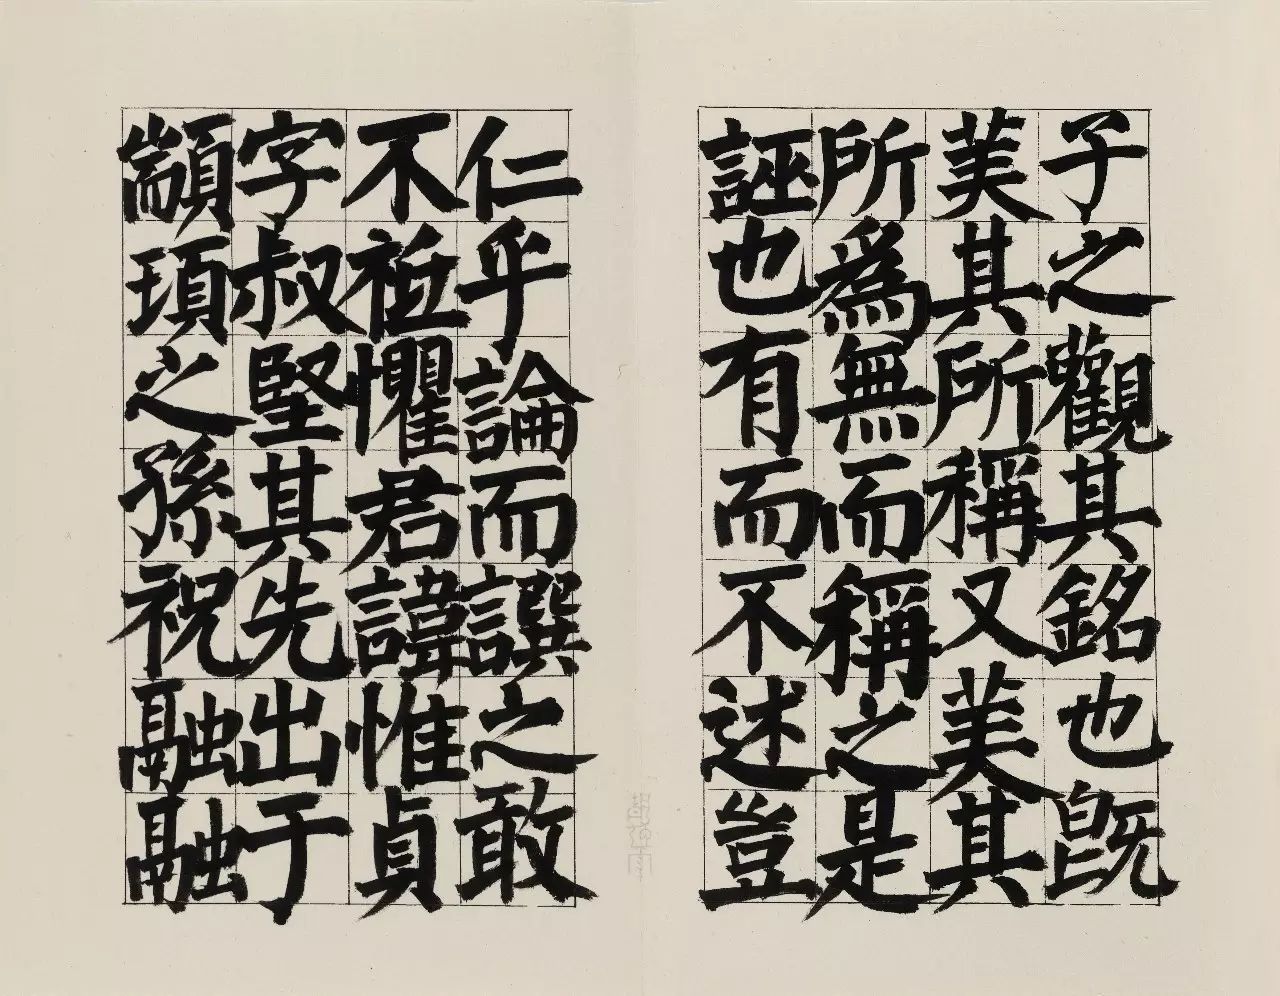 子之觀其銘也既
美其所稱又美其
所爲無而稱之是
誣也有而不述豈
仁乎論而譔之敢
不祗懼君諱惟貞
字叔堅其先出于
顓頊之孫祝融融